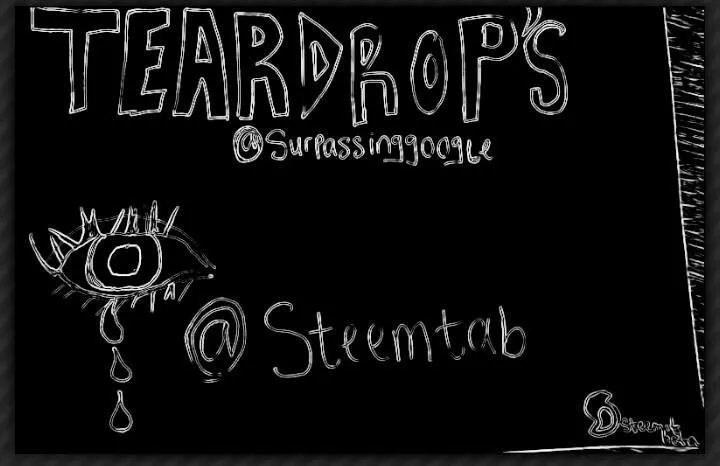 TEARDROP'S
@Surpassinggoogle
@Steemtab
steemit
beta